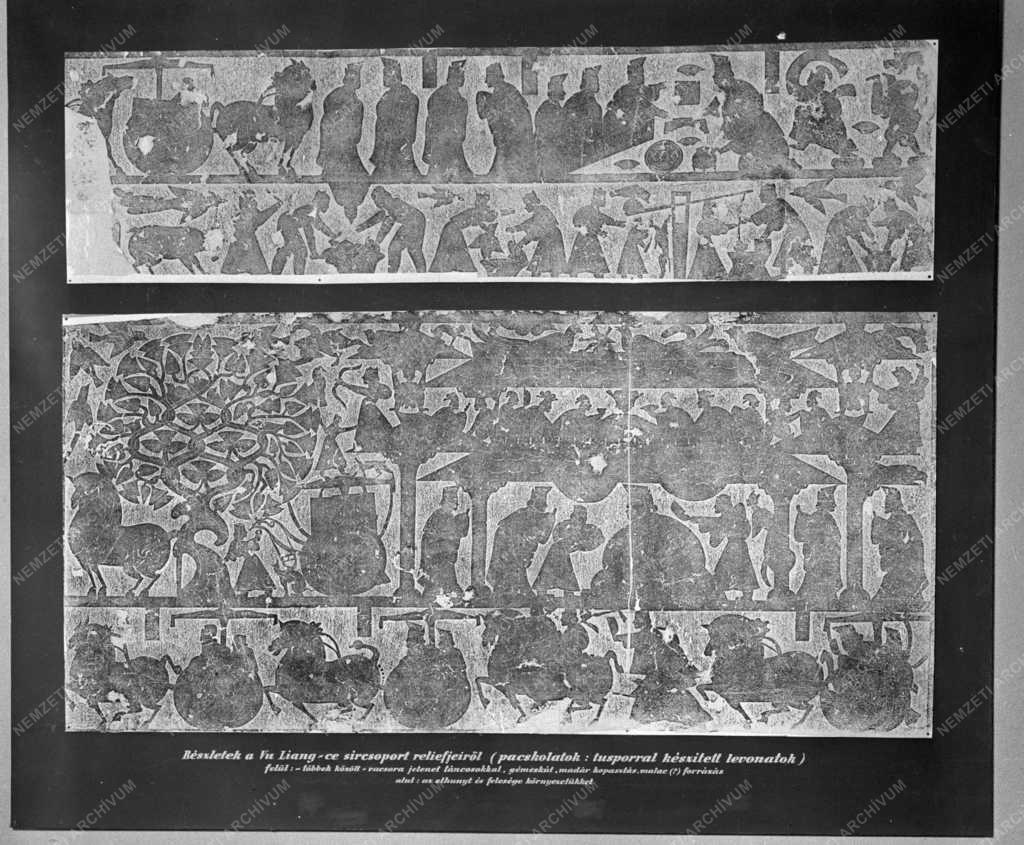 Részletek a Vu Liang-ce sírcsoport reliefjeiről (pacskolatok: tusporral készített levonatok)
felül: - többek között - vacsora jelenet táncosokkal, gémeskút, madár kopasztás, malac (?) forrázás
alul: az elhunyt és felesége környezetükkel
NEMZETI ARCHÍVUM